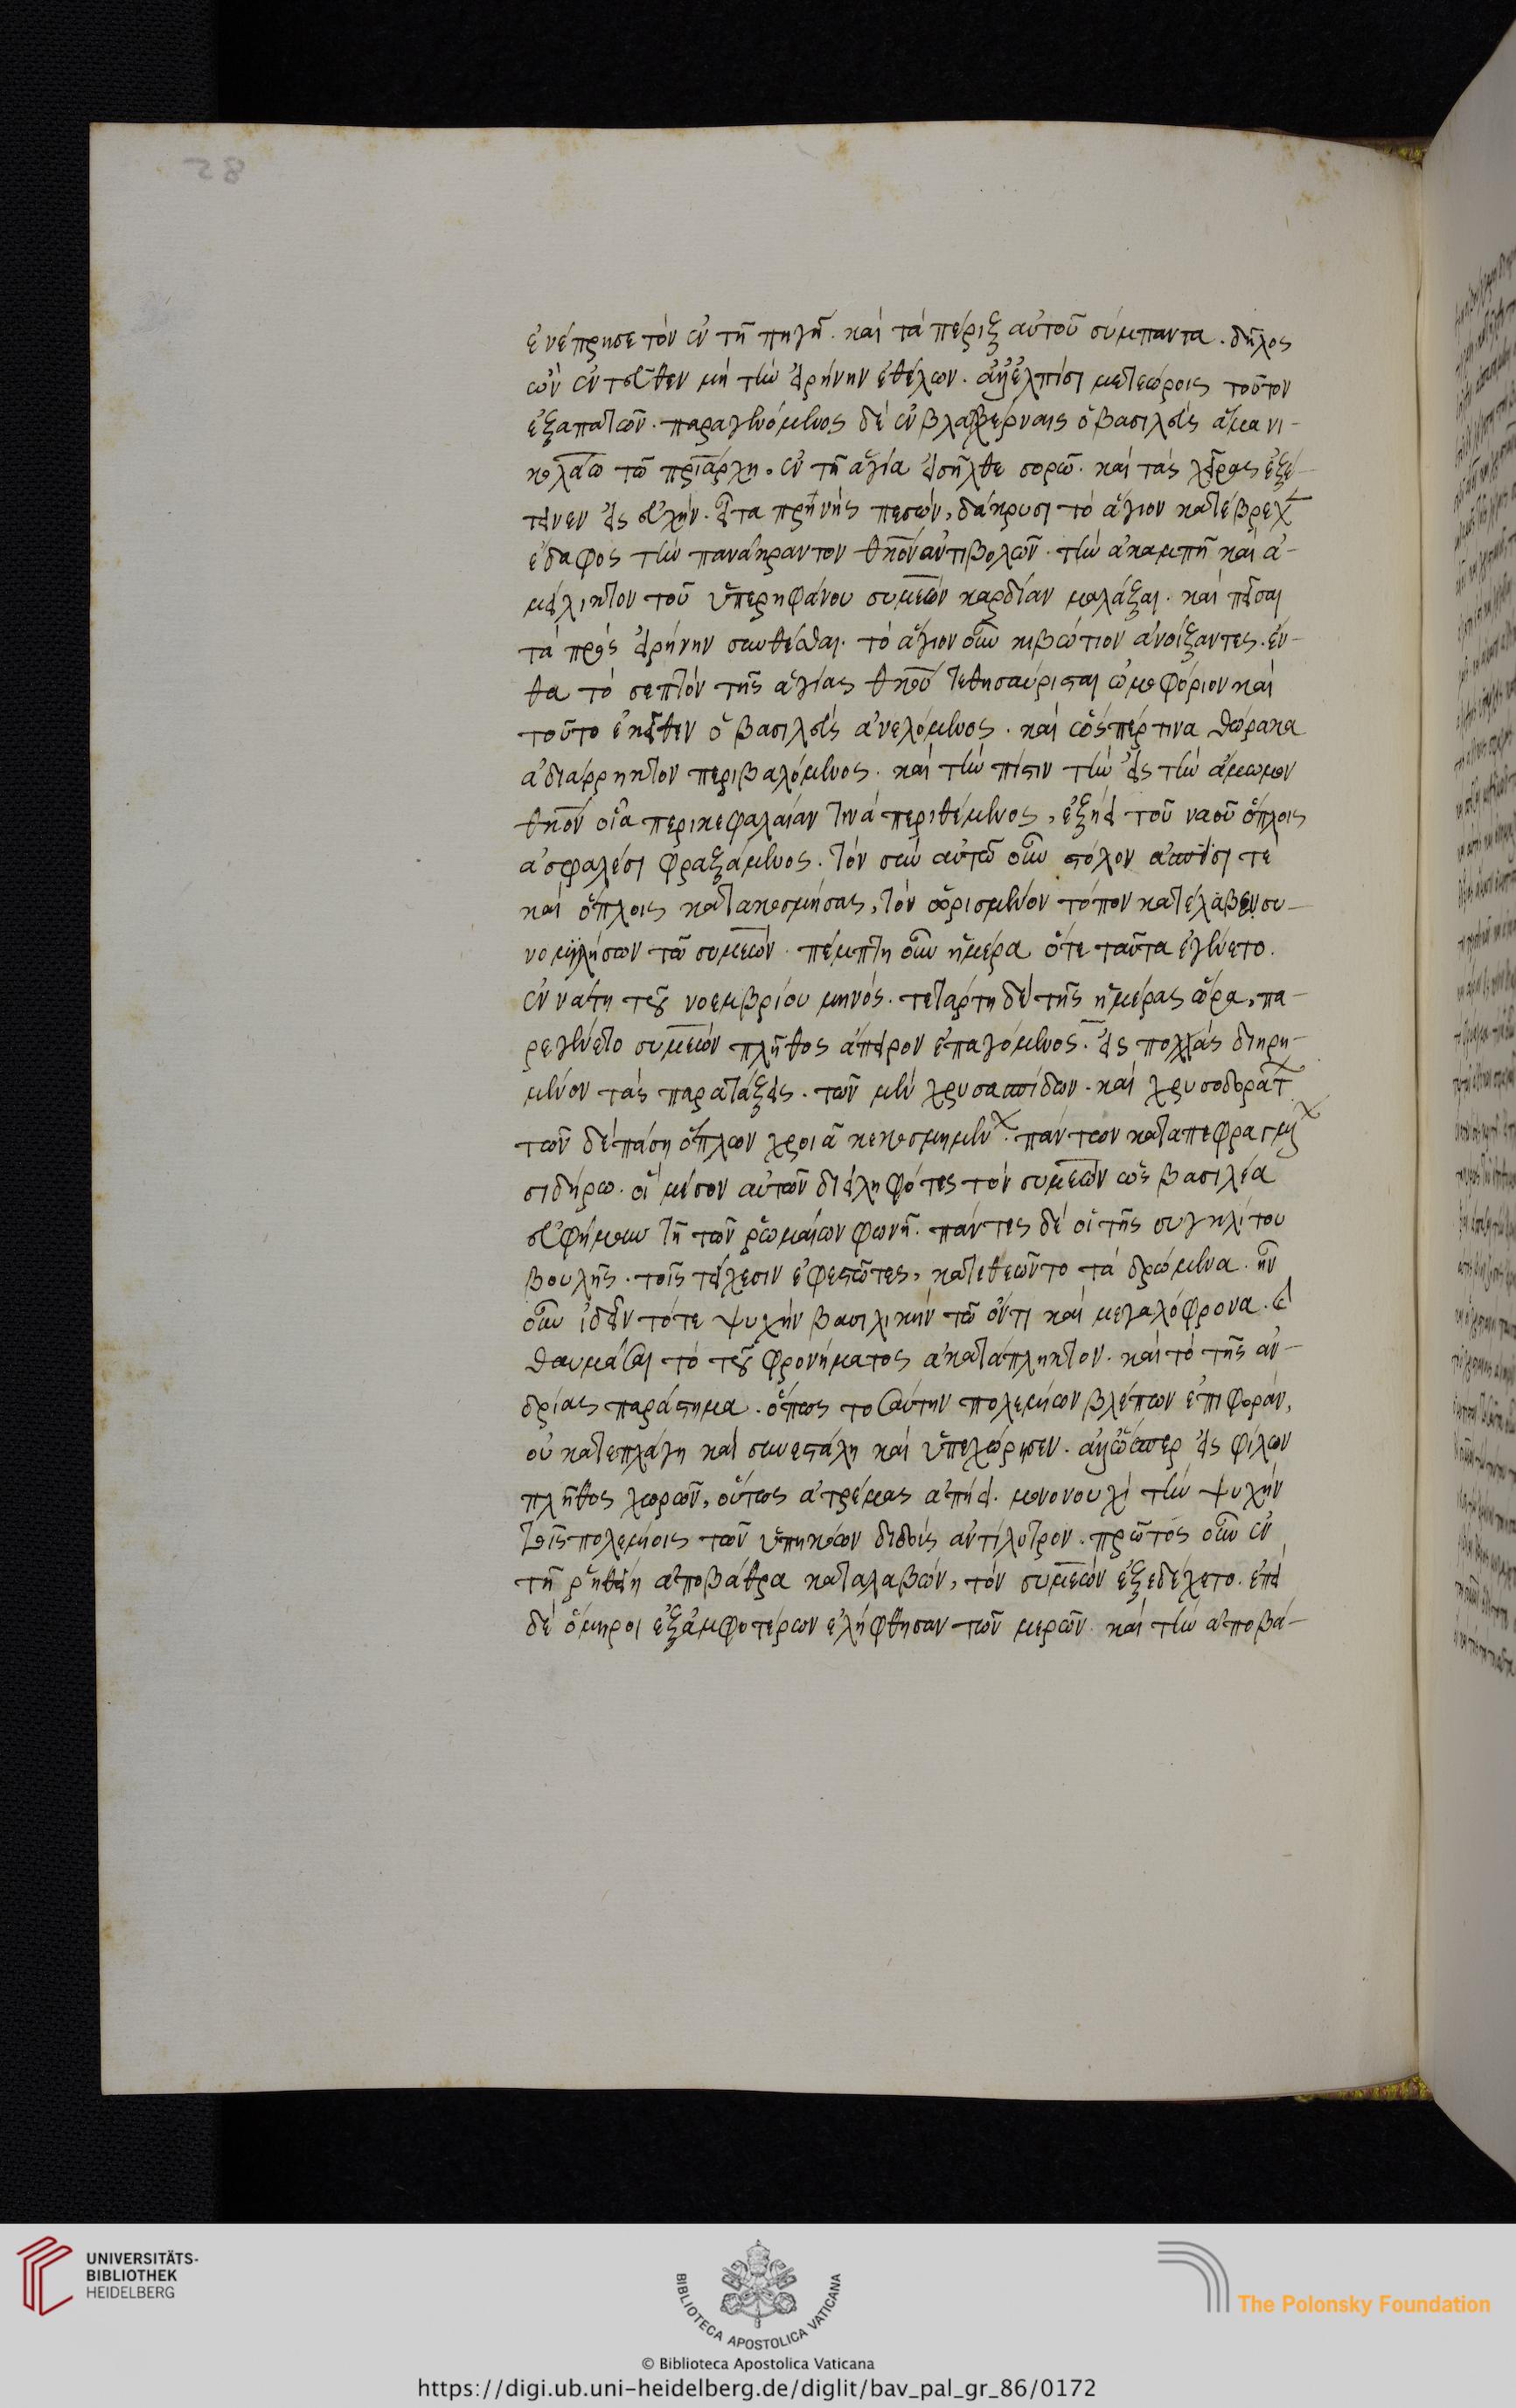 28
ἐνέπρησε τὸν ἐν τῆ πηγῆ. καὶ τὰ πέριξ αὐτοῦ σύμπαντα. δῆλος
ὢν ἐντεῦθεν μὴ τὴν εἰρήνην ἐθέλων. ἀλλ' ἐλπίσι μετεώροις τοῦτον
ἐξαπατῶν. παραγενόμενος δὲ ἐν βλαχέρναις ὁ βασιλεὺς ἅμα νι-
κολάω τῶ πριάρχη. ἐν τῆ ἁγία εἰσῆλθε σορῶ. καὶ τὰς χεῖρας ἐξέ-
τεινεν εἰς εὐχήν. εἶτα πρηνὴς πεσών, δάκρυσι τὸ ἅγιον κατέβρεχ
ἔδαφος τὴν πανάκραντον θκον ἀντιβολῶν. τὴν ἀκαμπῆ καὶ ἀ-
μείλικτον τοῦ ὑπερηφάνου συμεὼν καρδίαν μαλάξαι. καὶ πεῖσαι
τὰ πρὸς εἰρήνην συνθέσθαι. τὸ ἅγιον οὖν κιβώτιον ἀνοίξαντες. ἔν-
θα τὸ σεπτὸν τῆς ἁγίας θκου τεθησαύρισται ὠμοφόριον καὶ
τοῦτο ἐκεῖθεν ὁ βασιλεὺς ἀνελόμενος. καὶ ὥσπέρ τινα θώρακα
ἀδιάρρηκτον περιβαλόμενος. καὶ τὴν πίστιν τὴν εἰς τὴν ἄμωμον
θκον οἷα περικεφαλαίαν τινὰ περιθέμενος, ἐξήει τοῦ ναοῦ ὅπλοις
ἀσφαλέσι φραξάμενος. τὸν σὺν αὐτῶ οὖν στόλον ἀσπίσι τὲ
καὶ ὅπλοις κατακοσμήσας, τὸν ὁρισμένον τόπον κατέλαβεν συ-
νομιλήσων τῶ συμεών. πέμπτη οὖν ἡμέρα ὅτε ταῦτα ἐγένετο.
ἐννάτη τοῦ νοεμβρίου μηνός. τετάρτη δὲ τῆς ἡμέρας ὥρα, πα-
ρεγένετο συμεὼν πλῆθος ἄπειρον ἐπαγόμενος. εἰς πολλὰς διηρη-
μένον τὰς παρατάξεις. τῶν μὲν χρυσασπίδων. καὶ χρυσοδοράτ
τῶν δὲ πάση ὅπλων χροιᾶ κεκοσμημέν. πάντων καταπεφραγμ
σιδήρω. οἳ μέσον αὐτῶν διειληφότες τὸν συμεὼν ὡς βασιλέα
εὐφήμουν τῆ τῶν ῥωμαίων φωνῆ. πάντες δὲ οἱ τῆς συγκλίτου
βουλῆς. τοῖς τείχεσιν ἐφεστῶτες, κατεθεῶντο τὰ δρώμενα. ἦν
οὖν ἰδεῖν τότε ψυχὴν βασιλικὴν τῶ ὄντι καὶ μεγαλόφρονα. καὶ
θαυμάσαι τὸ τοῦ φρονήματος ἀκατάπληκτον. καὶ τὸ τῆς ἀν-
δρίας παράστημα. ὅπως τοσαύτην πολεμίων βλέπων ἐπιφοράν,
οὐ κατεπλάγη καὶ συνεστάλη καὶ ὑπεχώρησεν. ἀλλ' ὥσπερ εἰς φίλων
πλῆθος χωρῶν, οὕτως ἀτρέμας ἀπήει. μονονουχὶ τὴν ψυχὴν
τοῖς πολεμίοις τῶν ὑπηκόων διδοὺς ἀντίλυτρον. πρῶτος οὖν ἐν
τῆ ῥηθείη ἀποβάθρα καταλαβών, τὸν συμεὼν ἐξεδέχετο. ἐπεὶ
δὲ ὅμηροι ἐξ ἀμφοτέρων ἐλήφθησαν τῶν μερῶν. καὶ τὴν ἀποβά-
UNIVERSITÄTS-
BIBLIOTHEK
HEIDELBERG
BIBLIOTECA APOSTOLICA VATICANA
The Polonsky Foundation
© Biblioteca Apostolica Vaticana
https://digi.ub.uni-heidelberg.de/diglit/bav_pal_gr_86/0172